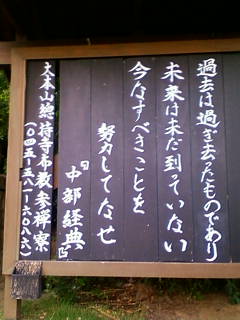 過去は過ぎ去ったものであり
未来は未だ到っていない
今なすべきことを
努力してなせ
『中部経典』
大本山總持寺布教参禅寮
(〇四五-五八一-六〇八六)